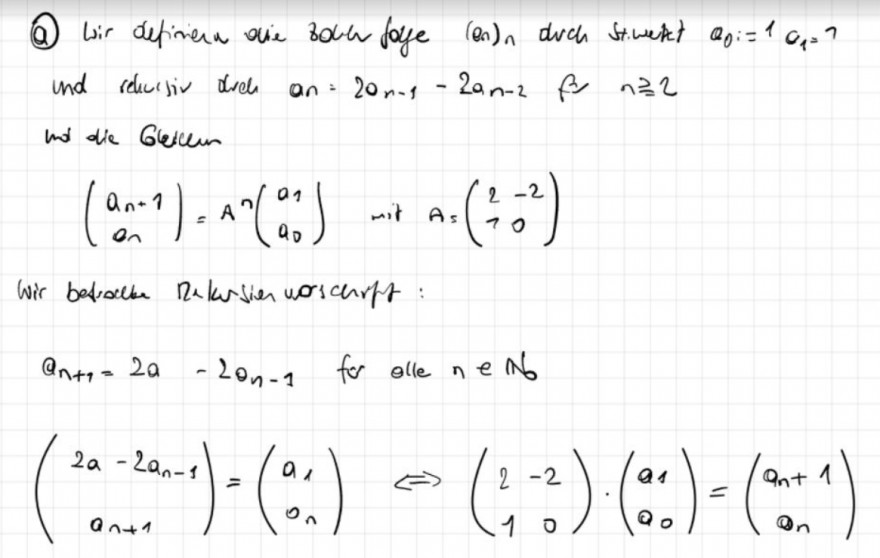 a) Wir definieren die Zahlenfolge (an)n durch Startwert a0 := 1 a1 = 1
und rekursiv durch an = 2an-1 - 2an-2 für n ≥ 2
und die Gleichung
(an+1 / an) = A^n (a1 / a0) mit A = (2 -2 / 1 0)
Wir betrachten Rekursionvorschrift :
an+1 = 2a - 2an-1 for alle n ∈ N0
(2a - 2an-1 / an+1) = (a1 / an) ⇔ (2 -2 / 1 0) · (a1 / a0) = (an+1 / an)